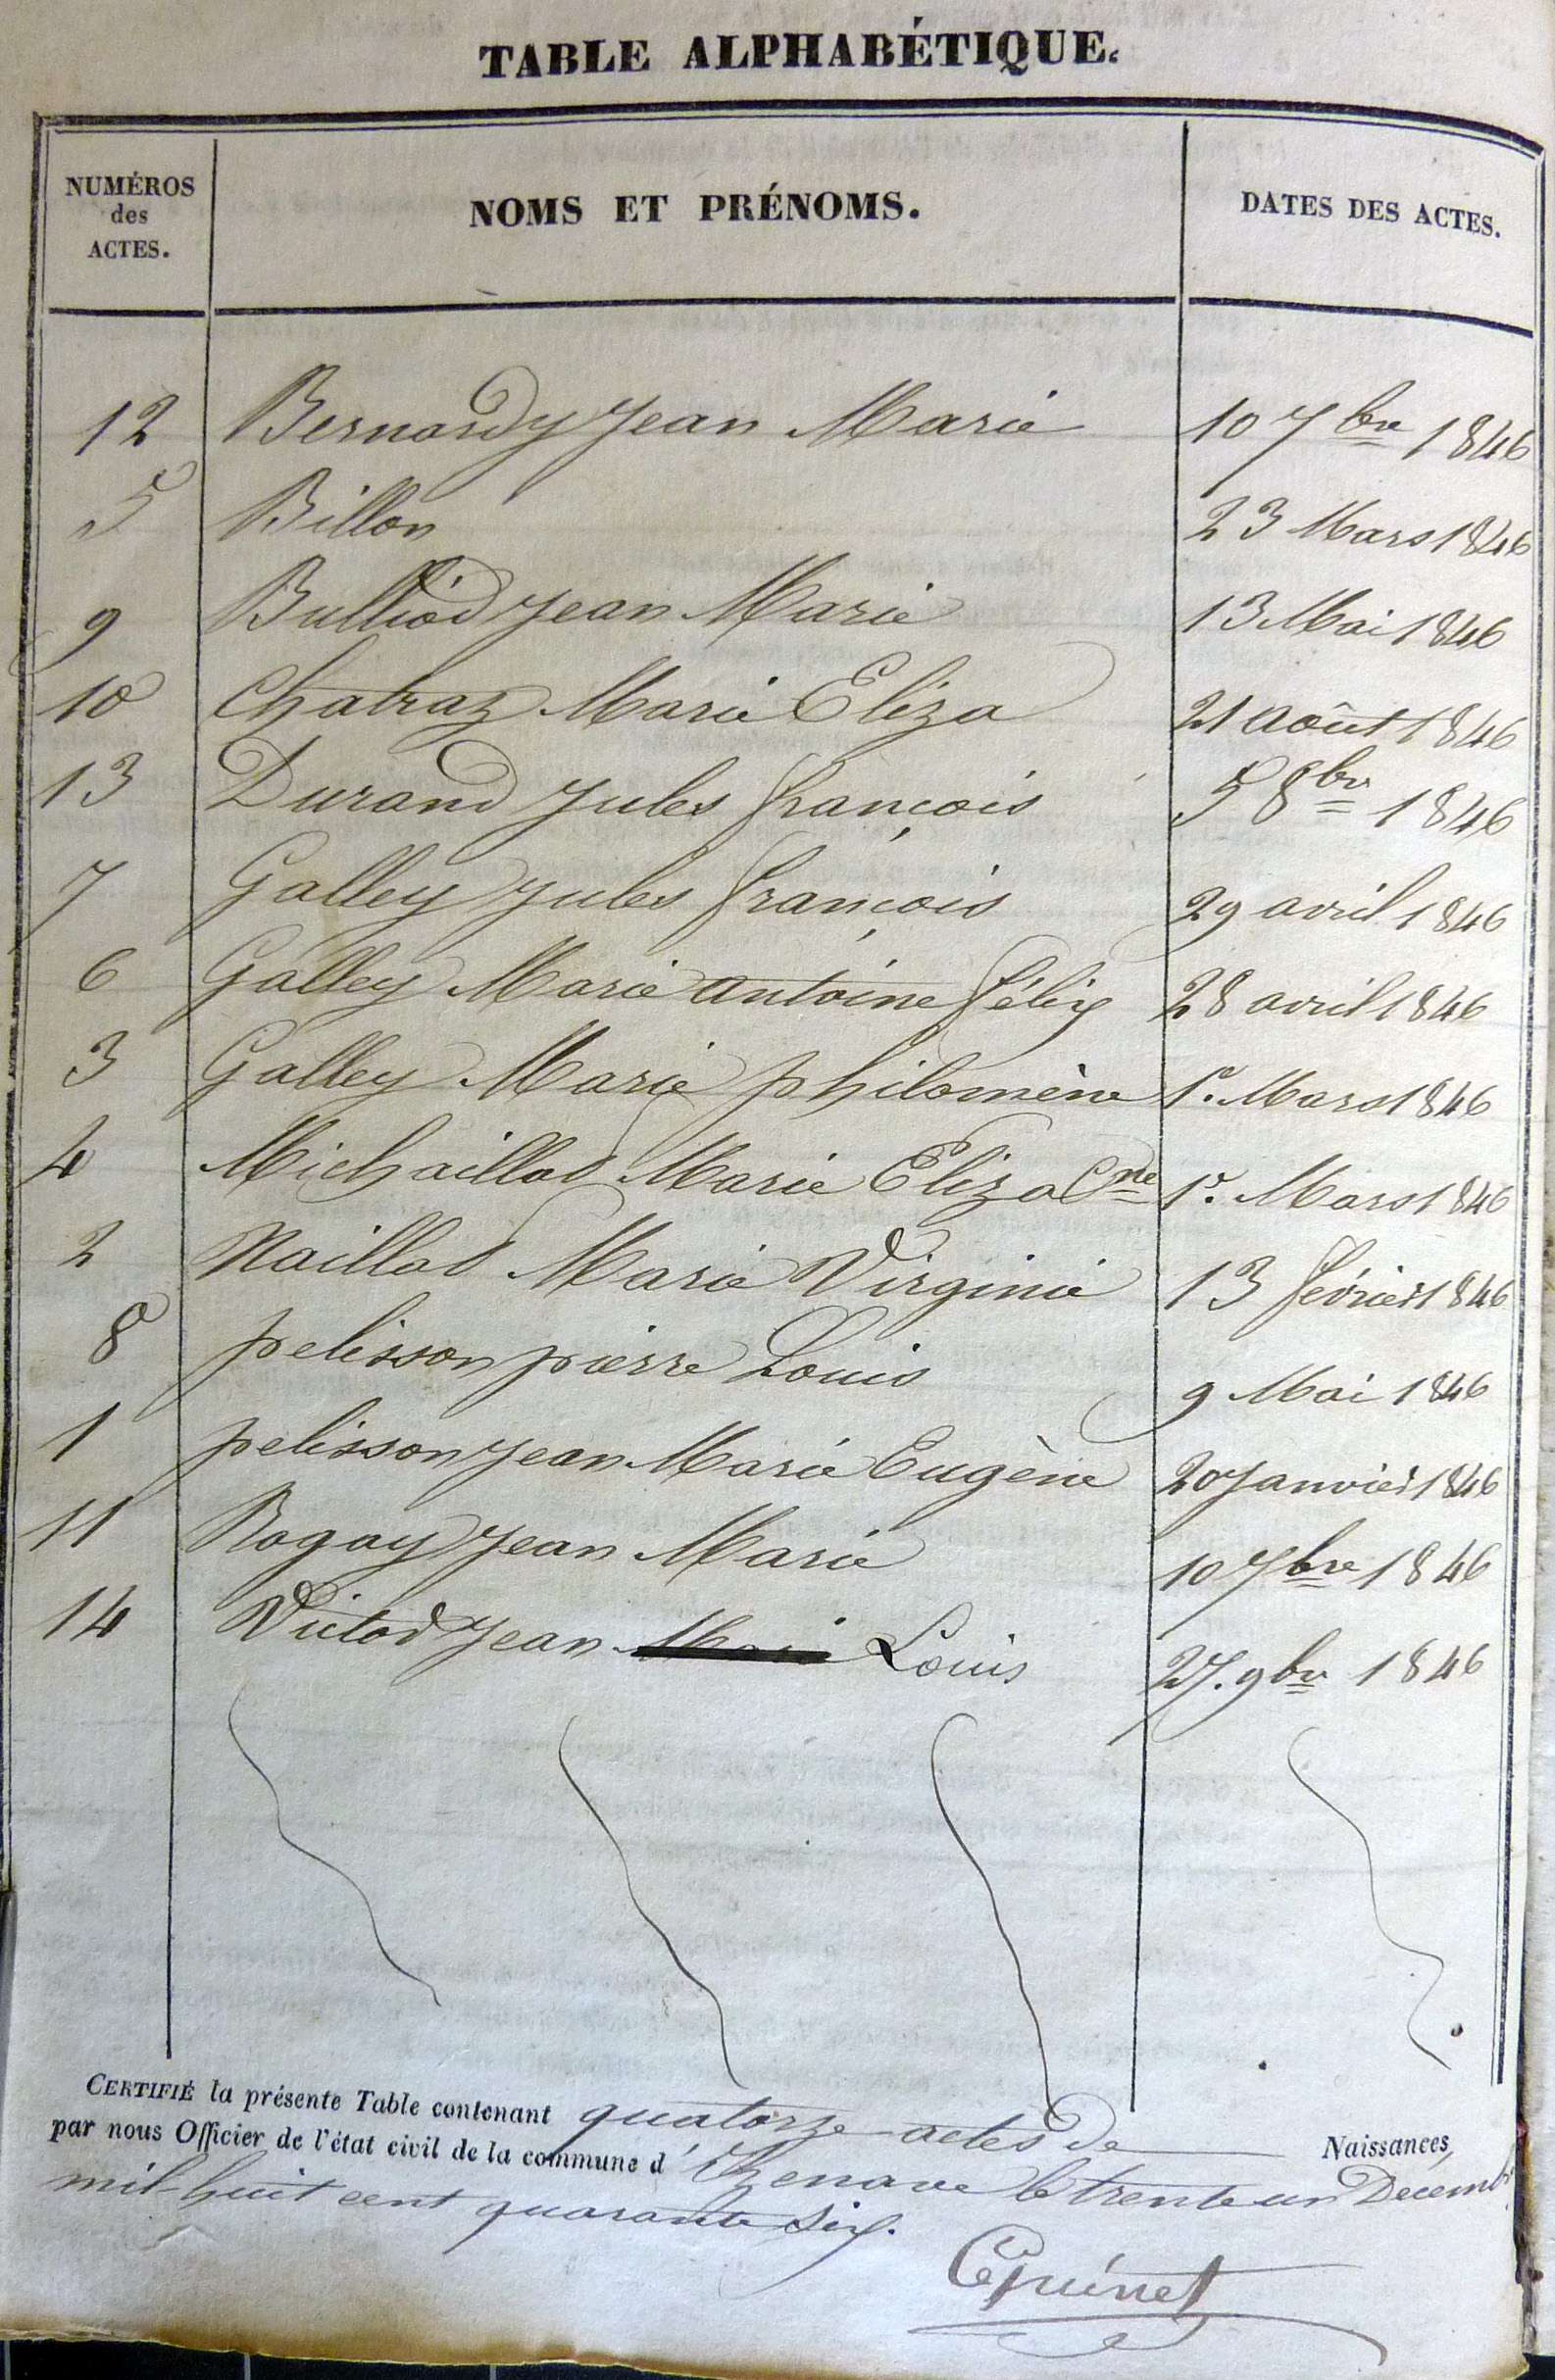 TABLE ALPHABÉTIQUE.
NUMÉROS des ACTES.
NOMS ET PRÉNOMS.
DATES DES ACTES.
12 Bernardy Jean Marie 10 7bre 1846
5 Billon 23 Mars 1846
9 Bulliod Jean Marie 13 Mai 1846
10 Chatraz Marie Eliza 21 août 1846
13 Durand Jules françois 5 8bre 1846
7 Galley Jules françois 29 avril 1846
6 Galley Marie antoine félix 28 avril 1846
3 Galley Marie philomène 1er Mars 1846
4 Michaillad Marie Eliza Cne 1er Mars 1846
2 Naillod Marie Virginie 13 février 1846
8 pelisson pierre Louis 9 Mai 1846
1 pelisson Jean Marie Eugène 20 Janvier 1846
11 Rogay Jean Marie 10 7bre 1846
14 Jean Louis 27. 9bre 1846
CERTIFIÉ la présente Table contenant quatorze actes de Naissances,
par nous Officier de l'état civil de la commune d' le trente un Decembre
mil huit cent quarante six.